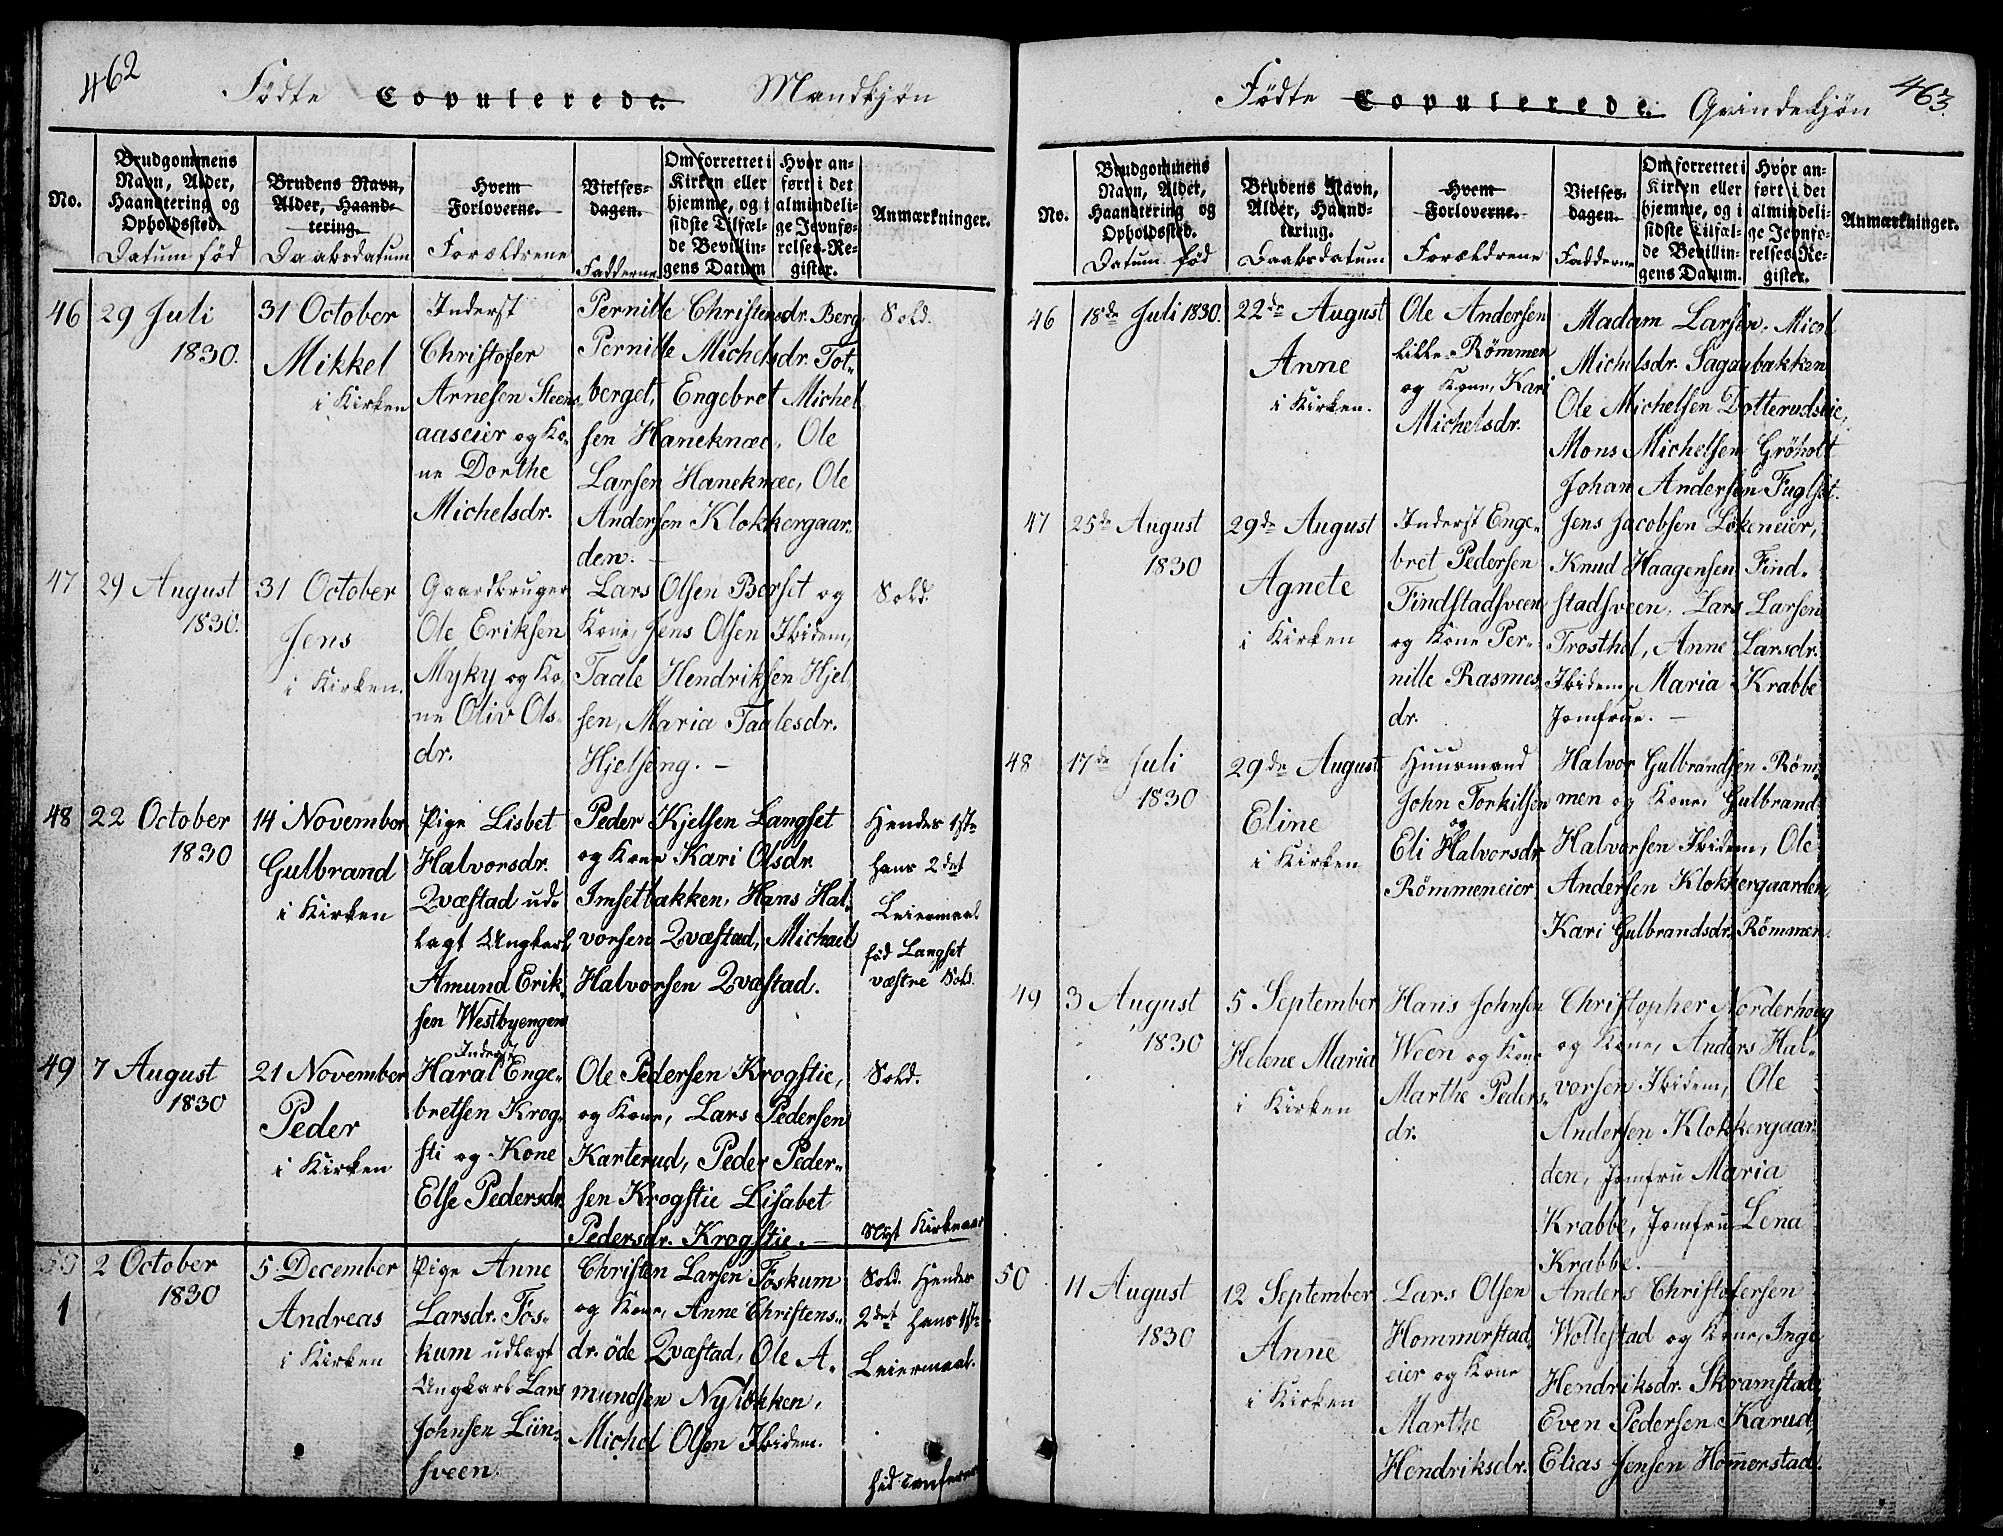 462
Födte Copulerede. Mandkjøn
No.
Brudgommens
Navn, Alder,
Haandtering og
Opholdssted.
Datum född
Brudens Navn,
Alder, Haand-
tering.
Daabsdatum
Hvem
Forloverne.
Forældrene
Vielses-
dagen.
Fadderne
Om forrettet i
Kirken eller
hjemme, og i
sidste Tilfæl-
de Bevillin-
gens Datum
Hvor an-
ført i det
almindeli-
ge Jevnfø-
relses-Re-
gister.
Anmærkninger.
46
29 Juli
1830.
31 October
Mikkel
i Kirken
Inderst
Christofer
Arnesen Steens-
aaseier og Ko-
ne Dorthe
Michelsdr.
Pernille Christensdr. Berg
Pernille Michelsdr. Tot-
berget, Engebret Michel
sen Haneknæe, Ole
Larsen Haneknæe, Ole
Andersen Klokkergaar-
den.
Sold.
47
29 August
1830.
31 October
Jens
i Kirken.
Gaardbruger
Ole Eriksen
Myky og Ko-
ne Oliv Ols-
dr.
Lars Olsen Berset og
Kone, Jens Olsen Ibidem,
Taale Hendriksen Hjel-
sen, Maria Taalesdr.
Hjelseng. -
Sold.
48
22 October
1830
14 November
Gulbrand
i Kirken
Pige Lisbet
Halvorsdr.
Qvæstad ud-
lagt Ungkarl
Amund Erik-
sen Westbyengen
Peder Kjelsen Langset
og Kone Kari Olsdr.
Imsetbakken, Hans Hal-
vorsen Qvæstad, Michael
Halvorsen Qvæstad.
Hendes 1ste
hans 2det
Leiermaal
föd Langset
væstre Sold.
49
7 August
1830
21 November
Peder
i Kirken
Inderst
Haral Enge-
bretsen Krog-
sti og Kone
Else Pedersdr.
Ole Pedersen Krogstie,
og Kone, Lars Pedersen
Karterud, Peder Peder-
sen Krogstie Lisabet
Pedersdr. Krogstie.
Sold.
Nyt Kirkeaar
50
1
2 October
1830
5 December
Andreas
i Kirken
Pige Anne
Larsdr. Fos-
kum udlagt
Ungkarl Lars
Johnsen Lün-
sveen.
Christen Larsen Foskum
og Kone, Anne Christens-
dr. öde Qvæstad, Ole A-
mundsen Nylökken,
Michel Olsen Ibidem.
Sold. Hendes
2det hans 1ste
Leiermaal.
463.
Födte Copulerede. Qvindekjøn
No.
Brudgommens
Navn, Alder,
Haandtering og
Opholdssted.
Datum föd
Brudens Navn,
Alder, Haand-
tering.
Daabsdatum
Hvem
Forloverne.
Forældrene
Vielses-
dagen.
Fadderne
Om forrettet i
Kirken eller
hjemme, og i
sidste Tilfæl-
de Bevillin-
gens Datum.
Hvor an-
ført i det
almindeli-
ge Jevnfø-
relses-Re-
gister.
Anmærkninger.
46
18de Juli 1830.
22de August
Anne
i Kirken.
Ole Andersen
Lille-Römmen
og Kone, Kari
Michelsdr.
Madam Larsen,
Michelsdr. Sagaabakken
Ole Michelsen Dotterudseie,
Mons Michelsen Gröholt
Johan Andersen Fuglset.
47
25de August
1830
29de August
Agnete
i Kirken
Inderst Enge-
bret Pedersen
Findstadsveen
og Kone Per-
nille Rasmes-
dr.
Jens Jacobsen Lökeneier,
Knud Haagensen Find-
stadsveen, Lars Larsen
Trosthol, Anne Larsdr.
Ibidem, Maria Krabbe
Jomfrue. -
48
17de Juli
1830
29de August
Eline
i Kirken
Huusmand
John Torkilsen
og
Eli Halvorsdr
Römmeneier
Halvor Gulbrandsen Röm-
men og Kone, Gulbrand
Halvorsen Ibidem, Ole
Andersen Klokkergaarden,
Kari Gulbrandsdr. Römmen.
49
3 August
1830
5 September
Helene Maria
i Kirken
Hans Johnsen
Ween og Kone
Marthe Peders-
dr.
Christopher Norderhoug
og Kone, Anders Hal-
vorsen Ibidem, Ole
Andersen Klokkergaar-
den, Jomfru Maria
Krabbe, Jomfru Lena
Krabbe.
50
11 August
1830
12 September
Anne
i Kirken
Lars Olsen
Hommerstad
eier og Kone
Marthe
Hendriksdr.
Anders Christofersen
Wollestad og Kone, Inge
Hendriksdr. Skramstad,
Even Pedersen Karud,
Elias Jensen Hommerstad.